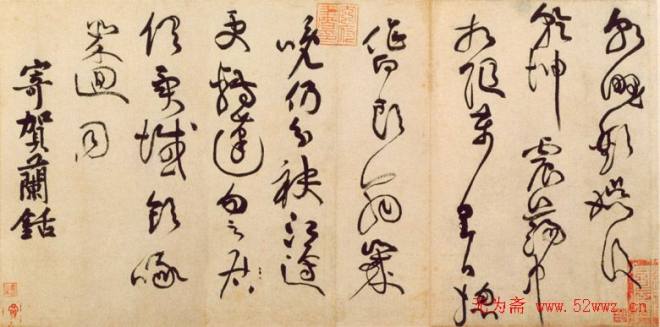 朝野歡娛後
乾坤震蕩中
相隨萬里日揔
作白頭翁歲
晚仍分袂江邊
更轉蓬勿
俱異域飲啄
幾迴同
寄賀蘭銛
无为斋 www.52wwz.cn